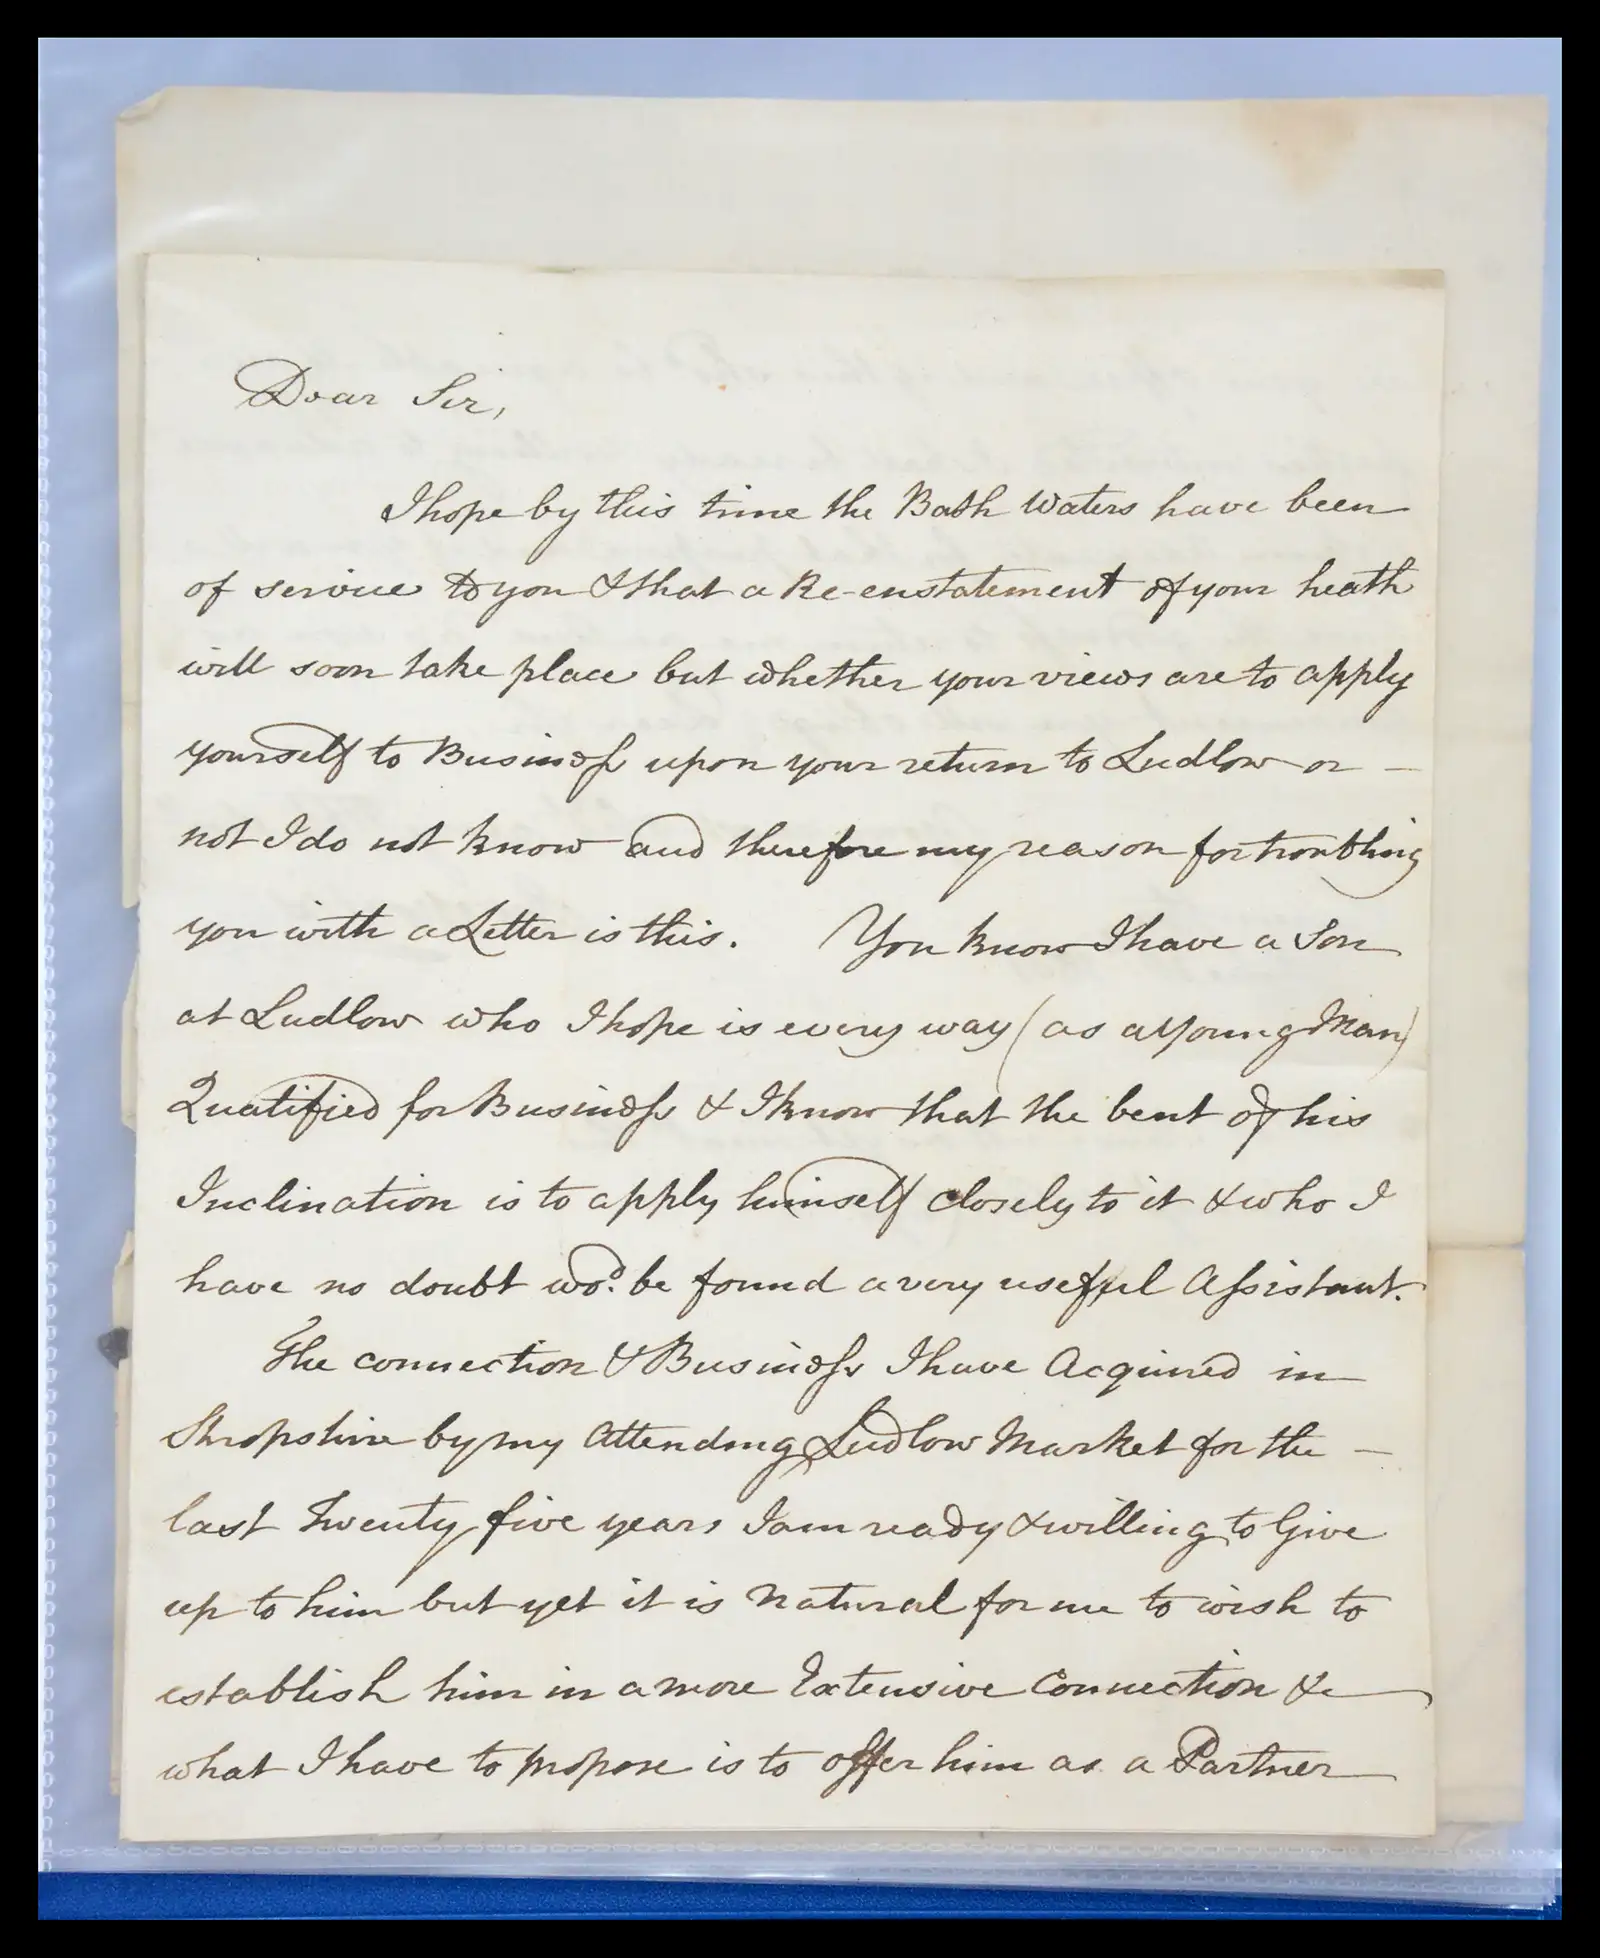 Dear Sir,
I hope by this time the Bath Waters have been
of service to you & that a Re-enstatement of your heath
will soon take place but whether your views are to apply
yourself to Business upon your return to Ludlow or —
not I do not know and therefore my reason for troubling
you with a Letter is this. You know I have a Son
at Ludlow who I hope is every way (as a Young Man)
Qualified for Business & I know that the bent of his
Inclination is to apply himself closely to it & who I
have no doubt wod. be found a very useful Assistant.
The connection & Business I have Acquired in
Shropshire by my Attending Ludlow Market for the —
last Twenty five years I am ready & willing to Give
up to him but yet it is Natural for me to wish to
establish him in a more Extensive Connection &
what I have to propose is to offer him as a Partner